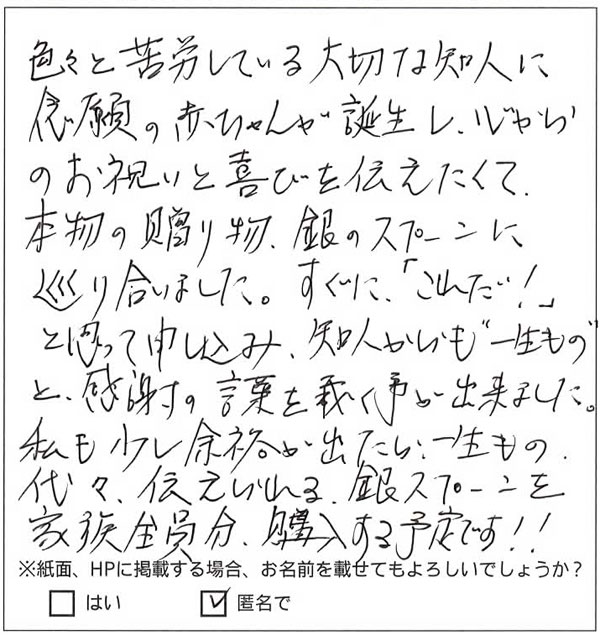 色々と苦労している大切な知人に
念願の赤ちゃんが誕生し、心から
のお祝いと喜びを伝えたくて、
本物の贈り物、銀のスプーンに
巡り合いました。すぐに、「これだ!」
と思って申し込み、知人からも"一生もの"
と、感謝の言葉を戴く事が出来ました。
私も少し余裕が出たら、一生もの、
代々、伝えられる、銀スプーンを
家族全員分、購入する予定です!!
※紙面、HPに掲載する場合、お名前を載せてもよろしいでしょうか?
はい 匿名で